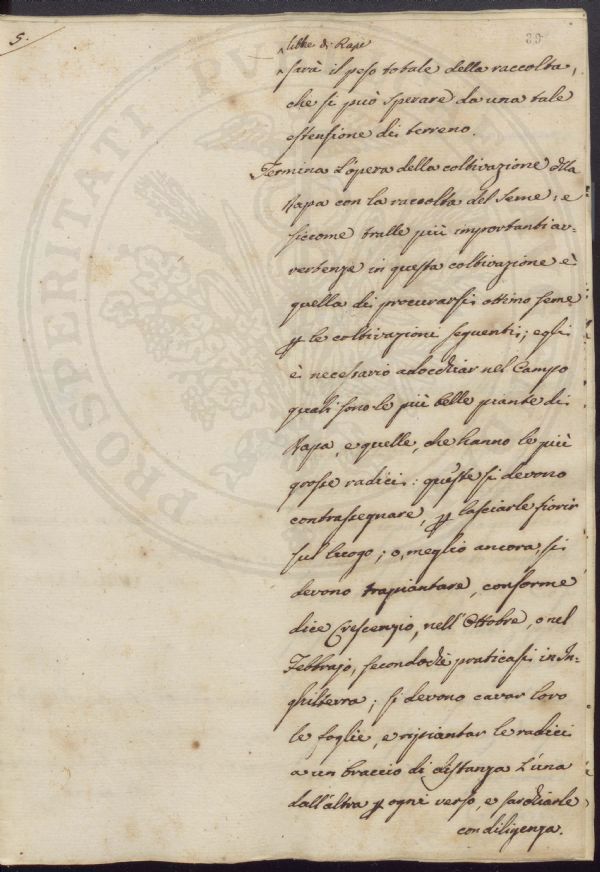 5.
89
libre di Rape
sarà il peso totale della raccolta,
che si può sperare da una tale
estensione di terreno.
Termina l'opera della coltivazione della
Rapa con la raccolta del Seme: e
siccome tralle più importanti av-
vertenze in questa coltivazione è
quella di procurarsi ottimo seme
p le coltivazioni seguenti; egli
è necessario adocchiar nel Campo
quali sono le più belle piante di
Rapa, e quelle, che hanno le più
grosse radici: queste si devono
contrassegnare, p lasciarle fiorir
sul luogo; o, meglio ancora, si
devono trapiantare, conforme
dice Crescenzio, nell'Ottobre, o nel
Febbrajo, secondochè praticasi in In-
ghilterra; si devono cavar loro
le foglie, e ripiantar le radici
a un braccio di distanza l'una
dall'altra p ogni verso, e sarchiarle
con diligenza.
PROSPERITATI PUB